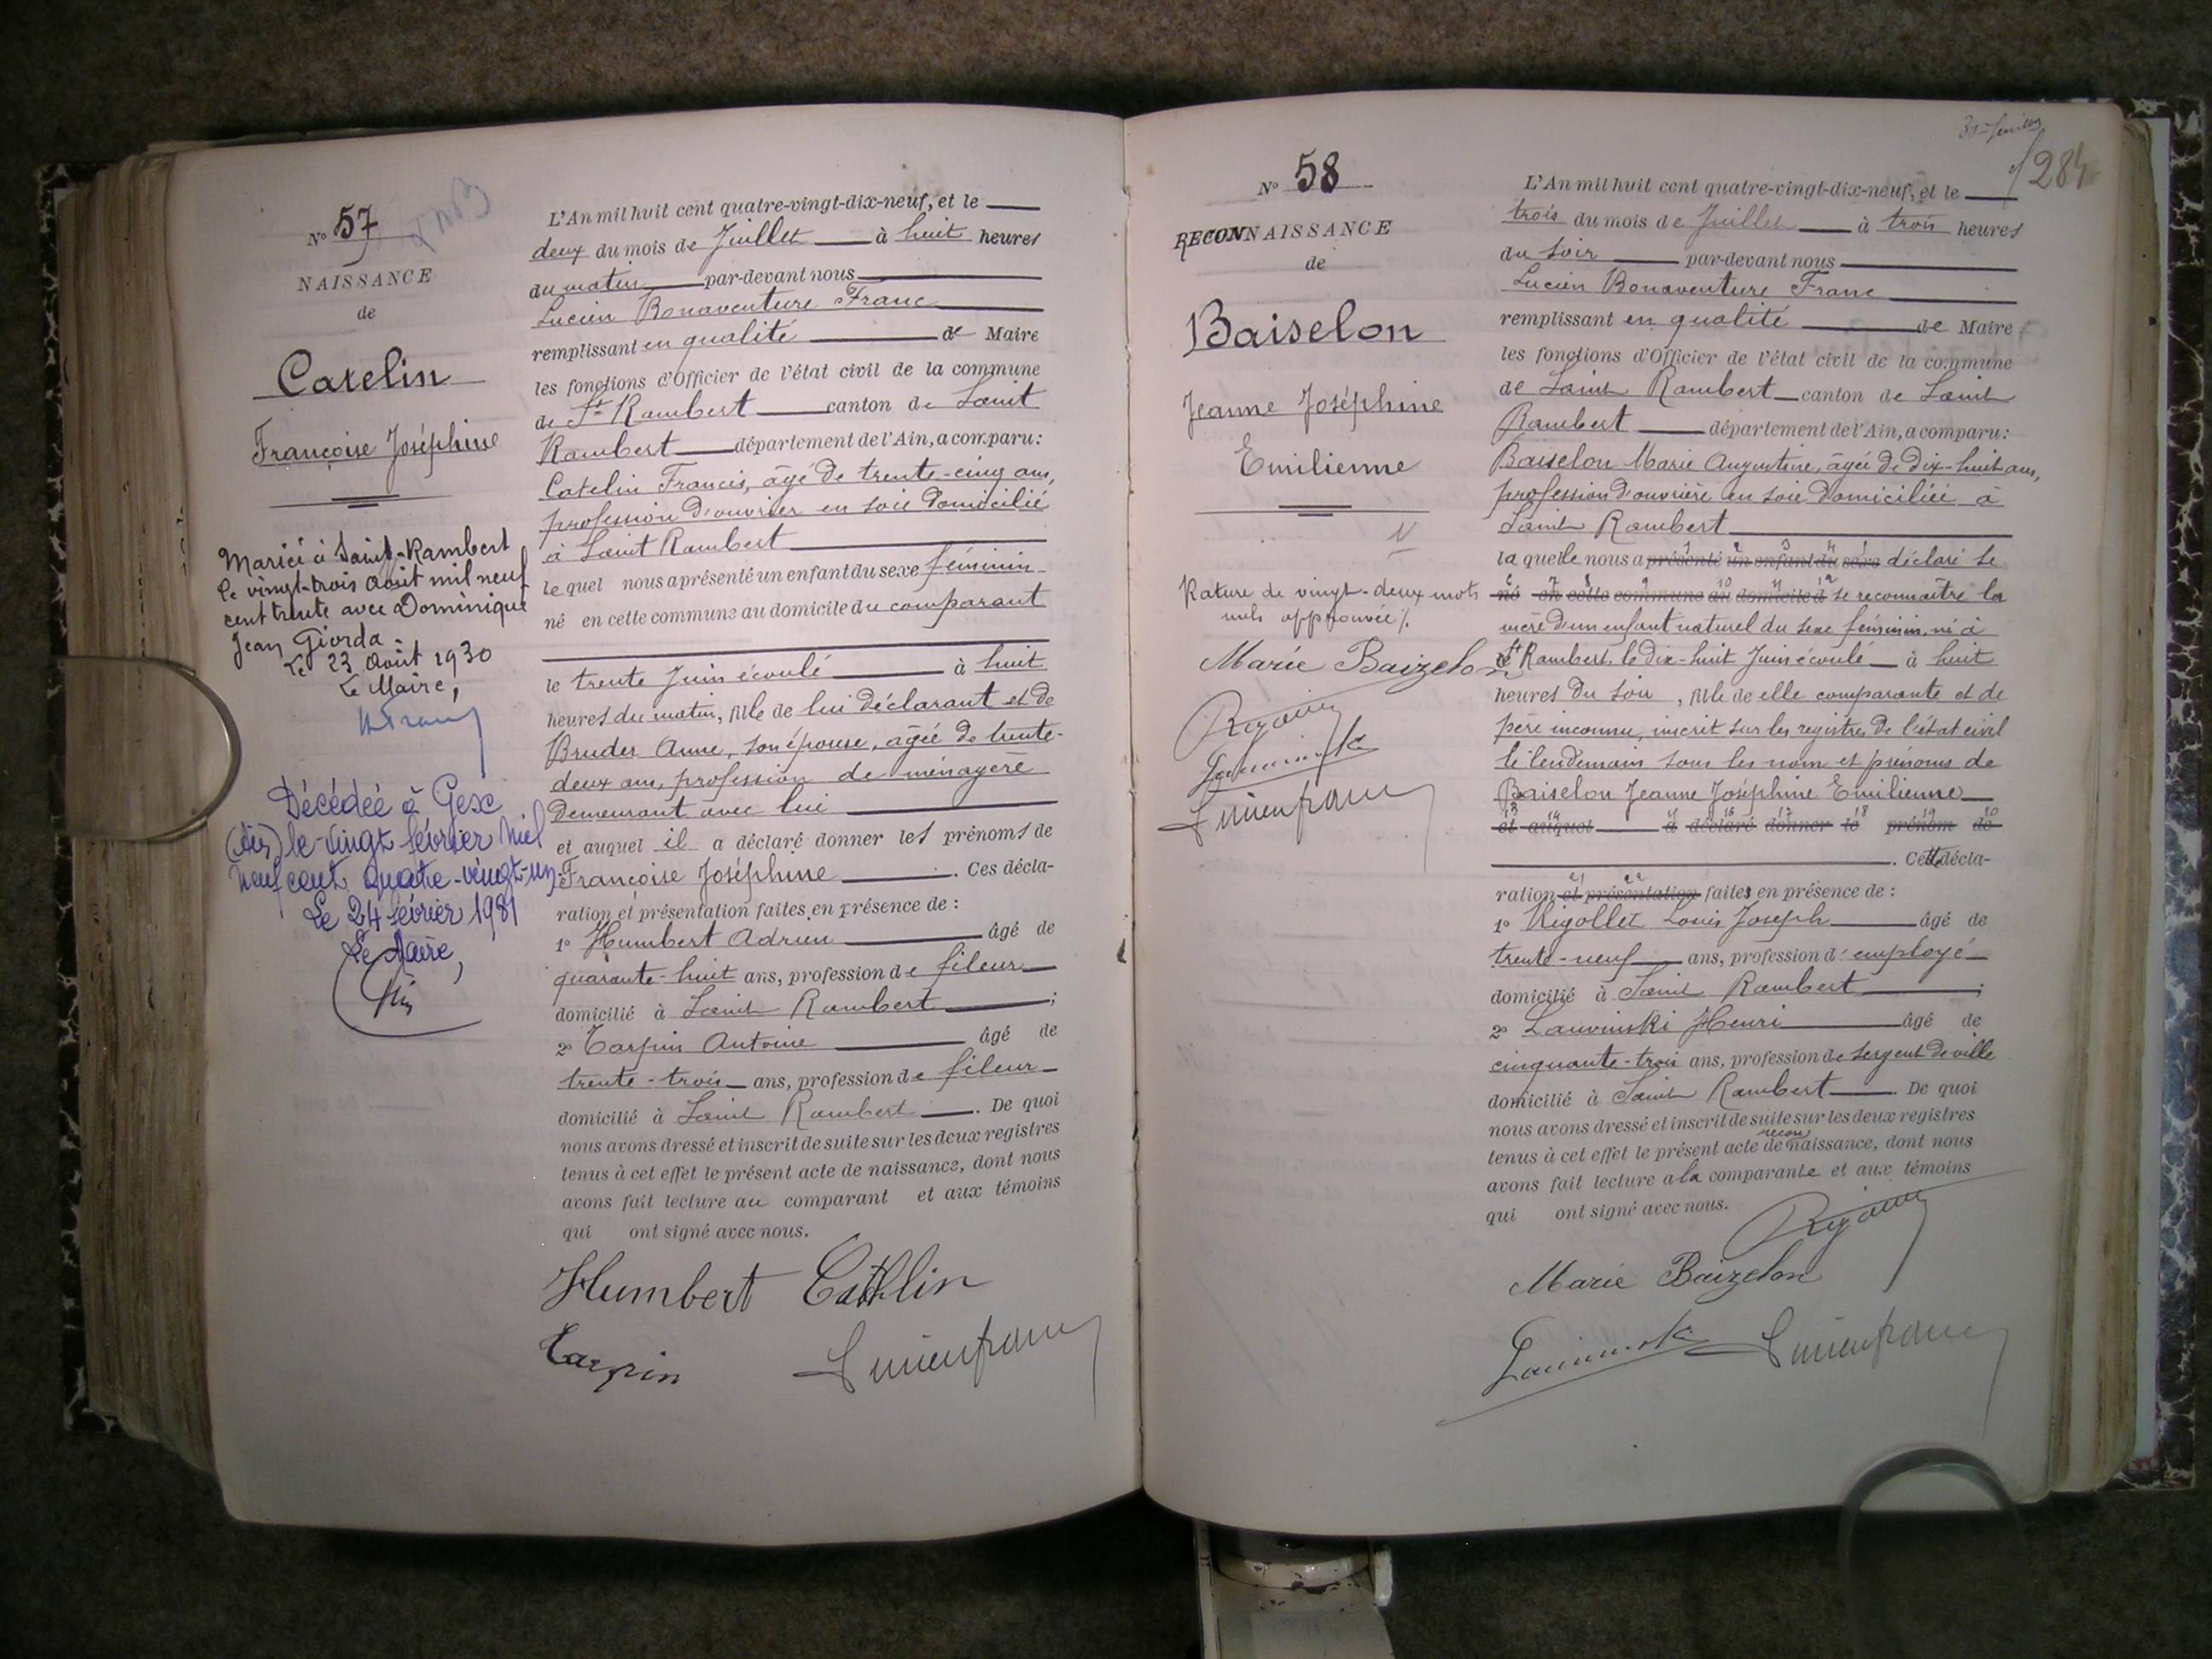 Nº 57
NAISSANCE
de
Catelin
Françoise Joséphine
Mariée à Saint-Rambert
le vingt-trois août mil neuf
cent trente avec Dominique
Jean Giorda.
Le 23 août 1930
Le Maire,
Décédée à Gex
(Ain) le vingt février Mil
neuf cent quatre-vingt-un.
Le 24 février 1981
Le Maire,
L'An mil huit cent quatre-vingt-dix-neuf, et le
deux du mois de Juillet à huit heures
du matin par-devant nous
Lucien Bonaventure Franc
remplissant en qualité de Maire
les fonctions d'Officier de l'état civil de la commune
de St-Rambert canton de Saint
Rambert département de l'Ain, a comparu:
Catelin Francis, âgé de trente-cinq ans,
profession d'ouvrier en soie domicilié
à Saint Rambert
lequel nous a présenté un enfant du sexe féminin
né en cette commune au domicile du comparant
le trente Juin écoulé à huit
heures du matin, fille de lui déclarant et de
Bruder Anne, son épouse, âgée de trente-
deux ans, profession de ménagère
demeurant avec lui
et auquel il a déclaré donner les prénoms de
Françoise Joséphine. Ces décla-
ration et présentation faites en présence de :
1º Humbert Adrien âgé de
quarante-huit ans, profession de fileur
domicilié à Saint Rambert ;
2º Tarpin Antoine âgé de
trente-trois ans, profession de fileur
domicilié à Saint Rambert. De quoi
nous avons dressé et inscrit de suite sur les deux registres
tenus à cet effet le présent acte de naissance, dont nous
avons fait lecture au comparant et aux témoins
qui ont signé avec nous.
Humbert Catelin
Tarpin Lucien franc
284
Nº 58
RECONNAISSANCE
de
Baiselon
Jeanne Joséphine
Emilienne
Rature de vingt-deux mots
nuls approuvée
Marie Baizelon
Lucien franc
L'An mil huit cent quatre-vingt-dix-neuf, et le
trois du mois de Juillet à trois heures
du soir par-devant nous
Lucien Bonaventure Franc
remplissant en qualité de Maire
les fonctions d'Officier de l'état civil de la commune
de Saint Rambert canton de Saint
Rambert département de l'Ain, a comparu:
Baiselon Marie Augustine, âgée de dix-huit ans,
profession d'ouvrière en soie domiciliée à
Saint Rambert
laquelle nous a présenté un enfant du sexe déclaré se
né en cette commune au domicile d se reconnaître la
mère d'un enfant naturel du sexe féminin, né à
St Rambert le dix-huit Juin écoulé à huit
heures du soir, fille de elle comparante et de
père inconnu, inscrit sur les registres de l'état civil
le lendemain sous les nom et prénoms de
Baiselon Jeanne Joséphine Emilienne
et auquel a déclaré donner le prénom de
. Cette décla-
ration et présentation faites en présence de :
1º Rigollet Louis Joseph âgé de
trente-neuf ans, profession d'employé
domicilié à Saint Rambert ;
2º Lauvinski Henri âgé de
cinquante-trois ans, profession de sergent de ville
domicilié à Saint Rambert. De quoi
nous avons dressé et inscrit de suite sur les deux registres
tenus à cet effet le présent acte de reconnaissance, dont nous
avons fait lecture à la comparante et aux témoins
qui ont signé avec nous.
Marie Baizelon
Lucien franc